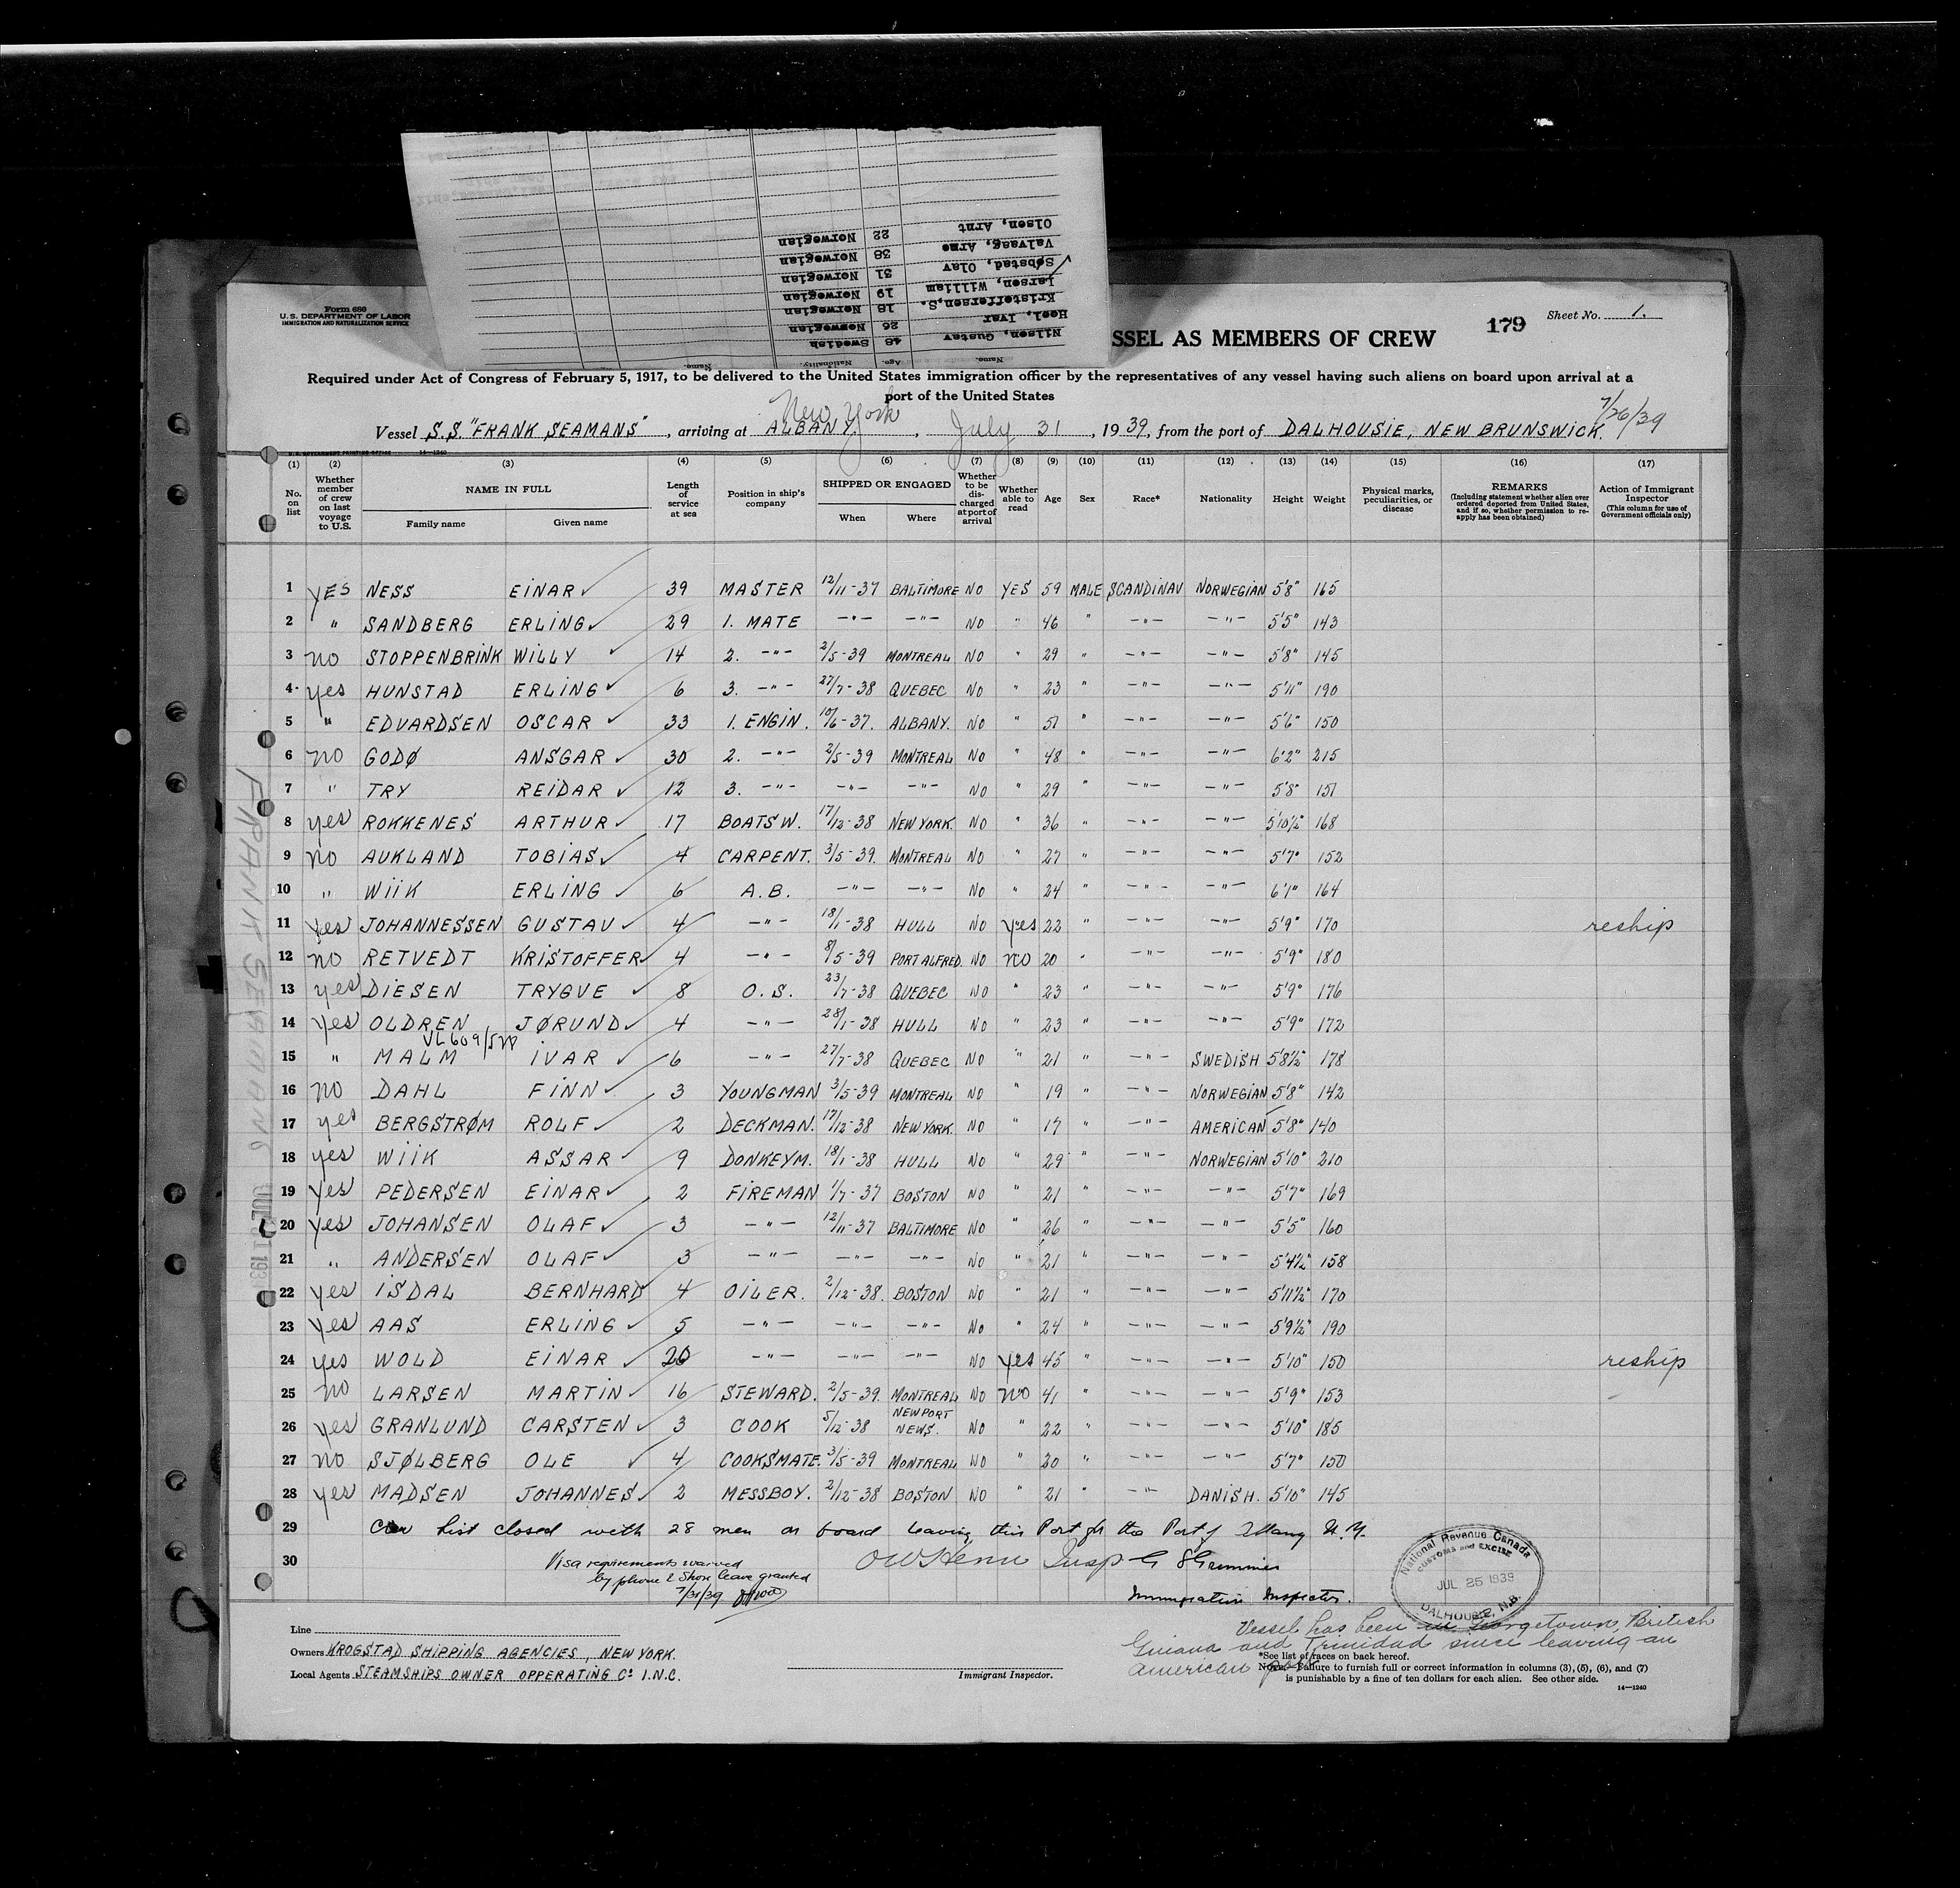 Olsen, Arnt 22 Norwegian
Valvaag, Arne 38 Norwegian
Søbstad, Olav 31 Norwegian
Larsen, William 19 Norwegian
Kristoffersen, S. 18 Norwegian
Hoel, Ivar 26 Norwegian
Nilsen, Gustav 48 Swedish
Name. Age. Nationality. Name.
Form 680
U.S. DEPARTMENT OF LABOR
IMMIGRATION AND NATURALIZATION SERVICE
SSEL AS MEMBERS OF CREW
179
Sheet No. 1.
Required under Act of Congress of February 5, 1917, to be delivered to the United States immigration officer by the representatives of any vessel having such aliens on board upon arrival at a
port of the United States
New York 7/26/39
Vessel S.S. "FRANK SEAMANS", arriving at ALBANY, July 31, 1939, from the port of DALHOUSIE, NEW BRUNSWICK.
U.S. GOVERNMENT PRINTING OFFICE 14—1240
(1) (2) (3) (4) (5) (6) (7) (8) (9) (10) (11) (12) (13) (14) (15) (16) (17)
No. on list
Whether member of crew on last voyage to U.S.
NAME IN FULL
Family name Given name
Length of service at sea
Position in ship's company
SHIPPED OR ENGAGED
When Where
Whether to be discharged at port of arrival
Whether able to read
Age
Sex
Race*
Nationality
Height
Weight
Physical marks, peculiarities, or disease
REMARKS
(Including statement whether alien ever ordered deported from United States, and if so, whether permission to reapply has been obtained)
Action of Immigrant Inspector
(This column for use of Government officials only)
1 YES NESS EINAR 39 MASTER 12/11-37 BALTIMORE NO YES 59 MALE SCANDINAV NORWEGIAN 5'8" 165
2 " SANDBERG ERLING 29 1. MATE —"— —"— NO " 46 " —"— —"— 5'5" 143
3 No STOPPENBRINK WILLY 14 2. —"— 2/5-39 MONTREAL NO " 29 " —"— —"— 5'8" 145
4 yes HUNSTAD ERLING 6 3. —"— 27/7-38 QUEBEC NO " 23 " —"— —"— 5'11" 190
5 " EDVARDSEN OSCAR 33 1. ENGIN. 10/6-37. ALBANY. NO " 51 " —"— —"— 5'6" 150
6 No GODØ ANSGAR 30 2. —"— 2/5-39 MONTREAL NO " 48 " —"— —"— 6'2" 215
7 " TRY REIDAR 12 3. —"— —"— —"— NO " 29 " —"— —"— 5'8" 151
8 yes ROKKENES ARTHUR 17 BOATSW. 17/12-38 NEW YORK. NO " 36 " —"— —"— 5'10½" 168
9 No AUKLAND TOBIAS 4 CARPENT. 3/5-39. MONTREAL NO " 27 " —"— —"— 5'7" 152
10 " WIIK ERLING 6 A.B. —"— —"— NO " 24 " —"— —"— 6'1" 164
11 yes JOHANNESSEN GUSTAV 4 —"— 18/1-38 HULL NO yes 22 " —"— —"— 5'9" 170 reship
12 No RETVEDT KRISTOFFER 4 —"— 8/5-39 PORT ALFRED. NO no 20 " —"— —"— 5'9" 180
13 yes DIESEN TRYGVE 8 O.S. 23/7-38 QUEBEC NO " 23 " —"— —"— 5'9" 176
14 yes OLDREN JØRUND 4 —"— 28/1-38 HULL NO " 23 " —"— —"— 5'9" 172
15 " MALM IVAR 6 —"— 27/7-38 QUEBEC NO " 21 " —"— SWEDISH 5'8½" 178
16 No DAHL FINN 3 YOUNGMAN 3/5-39 MONTREAL NO " 19 " —"— NORWEGIAN 5'8" 142
17 yes BERGSTRØM ROLF 2 DECKMAN. 17/12-38 NEW YORK. NO " 17 " —"— AMERICAN 5'8" 140
18 yes WIIK ASSAR 9 DONKEYM. 18/1-38 HULL NO " 29 " —"— NORWEGIAN 5'10" 210
19 yes PEDERSEN EINAR 2 FIREMAN 1/7-37 BOSTON NO " 21 " —"— —"— 5'7" 169
20 yes JOHANSEN OLAF 3 —"— 12/11-37 BALTIMORE NO " 26 " —"— —"— 5'5" 160
21 " ANDERSEN OLAF 3 —"— —"— —"— NO " 21 " —"— —"— 5'4½" 158
22 yes ISDAL BERNHARD 4 OILER. 2/12-38. BOSTON NO " 21 " —"— —"— 5'11½" 170
23 yes AAS ERLING 5 —"— —"— —"— NO " 24 " —"— —"— 5'9½" 190
24 yes WOLD EINAR 20 —"— —"— —"— NO yes 45 " —"— —"— 5'10" 150 reship
25 No LARSEN MARTIN 16 STEWARD. 2/5-39. MONTREAL NO no 41 " —"— —"— 5'9" 153
26 yes GRANLUND CARSTEN 3 COOK 5/12-38 NEWPORT NEWS. NO " 22 " —"— —"— 5'10" 185
27 No SJØLBERG OLE 4 COOKSMATE. 3/5-39 MONTREAL NO " 20 " —"— —"— 5'7" 150
28 yes MADSEN JOHANNES 2 MESSBOY. 2/12-38 BOSTON NO " 21 " —"— DANISH. 5'10" 145
29 Crew List closed with 28 men on board leaving this Port for the Port of Albany N.Y.
30 Visa requirements waived
by phone & Shore leave granted
7/31/39
Insp
Immigration Inspector.
National Revenue Canada
CUSTOMS and EXCISE
JUL 25 1939
DALHOUSIE, N.B.
FRANK SEAMANS
Line
Owners KROGSTAD SHIPPING AGENCIES, NEW YORK.
Local Agents STEAMSHIPS OWNER OPPERATING Co I.N.C.
Immigrant Inspector.
Vessel has been in Georgetown, British
Guiana and Trinidad since leaving an
American port
*See list of races on back hereof.
Note.—Failure to furnish full or correct information in columns (3), (5), (6), and (7)
is punishable by a fine of ten dollars for each alien. See other side.
14—1240